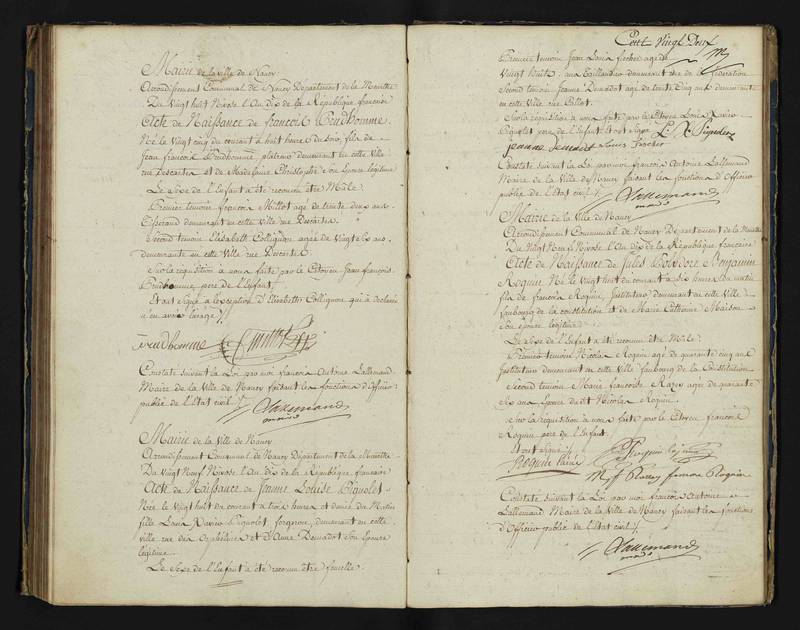 Mairie de la ville de Nancy
Arrondissement Communal de Nancy Département de la Meurthe
Du Vingt huit Nivose l'An dix de la République françoise
Acte de Naissance de françois Prudhomme
Né le vingt cinq du courant à huit heures du soir, fils de
Jean françois Prudhomme, platreur demeurant en cette ville
rue Descartes et de Madelaine Christophe son Epouse légitime
Le Sexe de l'Enfant a été reconnu être Mâle.
Premier temoin françois Millot agé de trente deux ans
Tisserand demeurant en cette ville rue Descartes
Second temoin Elisabeth Collignon agée de Vingt ans
demeurante en cette Ville rue Descartes
Sur la requisition à nous faite par le Citoyen Jean françois
Prudhomme pere de l'Enfant
Et ont Signé à l'exception d'Elisabeth Collignon qui a declarée
n'en avoir l'usage
prudhomme millot
Constaté suivant la Loi par moi françois Antoine Lallemand
Maire de la Ville de Nancy faisant les fonctions d'Officier
public de l'Etat civil
Lallemand
Mairie de la ville de Nancy
Arrondissement Communal de Nancy Département de la Meurthe
Du Vingt Neuf Nivose l'An dix de la République françoise
Acte de Naissance de Jeanne Louise Piquolet
Née le vingt huit du courant à trois heures et demie du Matin
fille Louis Xavier Piquolet forgeron, demeurant en cette
ville rue des Orphelines et d'Anne Demardot son Epouse
légitime
Le Sexe de l'Enfant a été reconnu être femelle
Cent Vingt Deux
Premier temoin Jean Louis fischer agé de
Vingt huit ans Taillandier demeurant rue de la federation
Second temoin Jeanne agée de trente Cinq ans demeurante
en cette ville rue Callot.
Sur la requisition à nous faite par le Citoyen Louis Xavier
Piquolet pere de l'Enfant et ont signé L. X. Piquolet
jeanne Louis fischer
Constaté suivant la Loi par moi françois Antoine Lallemand
Maire de la Ville de Nancy faisant les fonctions d'Officier
public de l'Etat civil
Lallemand
Mairie de la Ville de Nancy
Arrondissement Communal de Nancy Département de la Meurthe
Du Vingt Neuf Nivose l'An dix de la République françoise
Acte de Naissance de Jules Polidore Benjamin
Roguin Né le Vingt huit du courant à six heures du matin
fils de françois Roguin, Instituteur demeurant en cette Ville
faubourg de la constitution et de Marie Catherine Maison
son épouse légitime
Le Sexe de l'Enfant a été reconnu être Mâle
Premier temoin Nicolas Roguin agé de quarante cinq ans
Instituteur demeurant en cette Ville faubourg de la Constitution
Second temoin Marie françoise agée de quarante
six ans Epouse dudit Nicolas Roguin
Sur la requisition à nous faite par le Citoyen françois
Roguin pere de l'Enfant
Et ont signé
Roguin l'ainé F. Roguin
M. f femme Roguin
Constaté suivant la Loi par moi françois Antoine
Lallemand Maire de la Ville de Nancy faisant les fonctions
d'Officier public de l'Etat civil
Lallemand